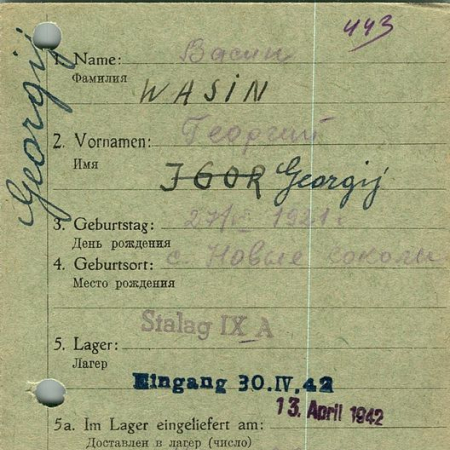 443
Georgij
1. Name: Васин
Фамилия
WASIN
2. Vornamen: Георгий
Имя
IGOR Georgij
3. Geburtstag: 1921 г
День рождения
4. Geburtsort: с. Новые соколы
Место рождения
Stalag IX A
5. Lager:
Лагер
Eingang 30.IV.42
13. April 1942
5a. Im Lager eingeliefert am:
Доставлен в лагер (число)